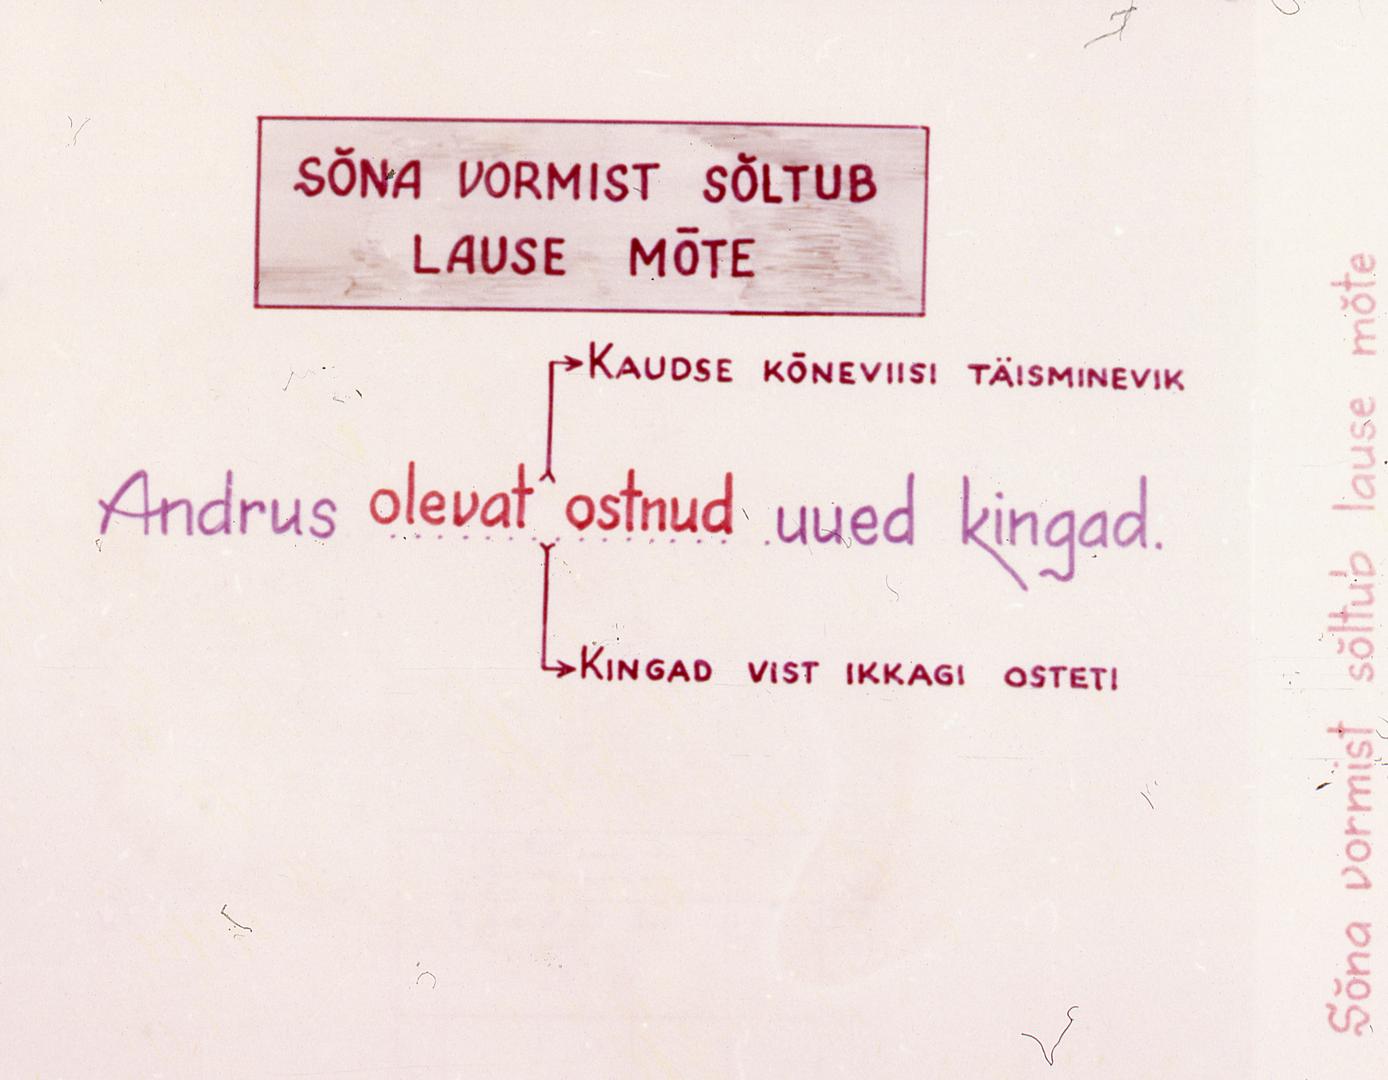 SÕNA VORMIST SÕLTUB
LAUSE MÕTE
KAUDSE KÕNEVIISI TÄISMINEVIK
Andrus olevat ostnud uued kingad.
KINGAD VIST IKKAGI OSTETI
Sõna vormist sõltub lause mõte